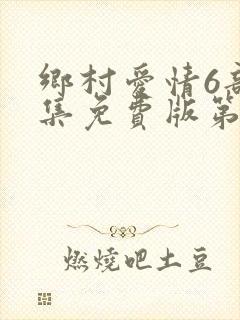 鄉村愛情6高
集免費版第
燃燒吧土豆